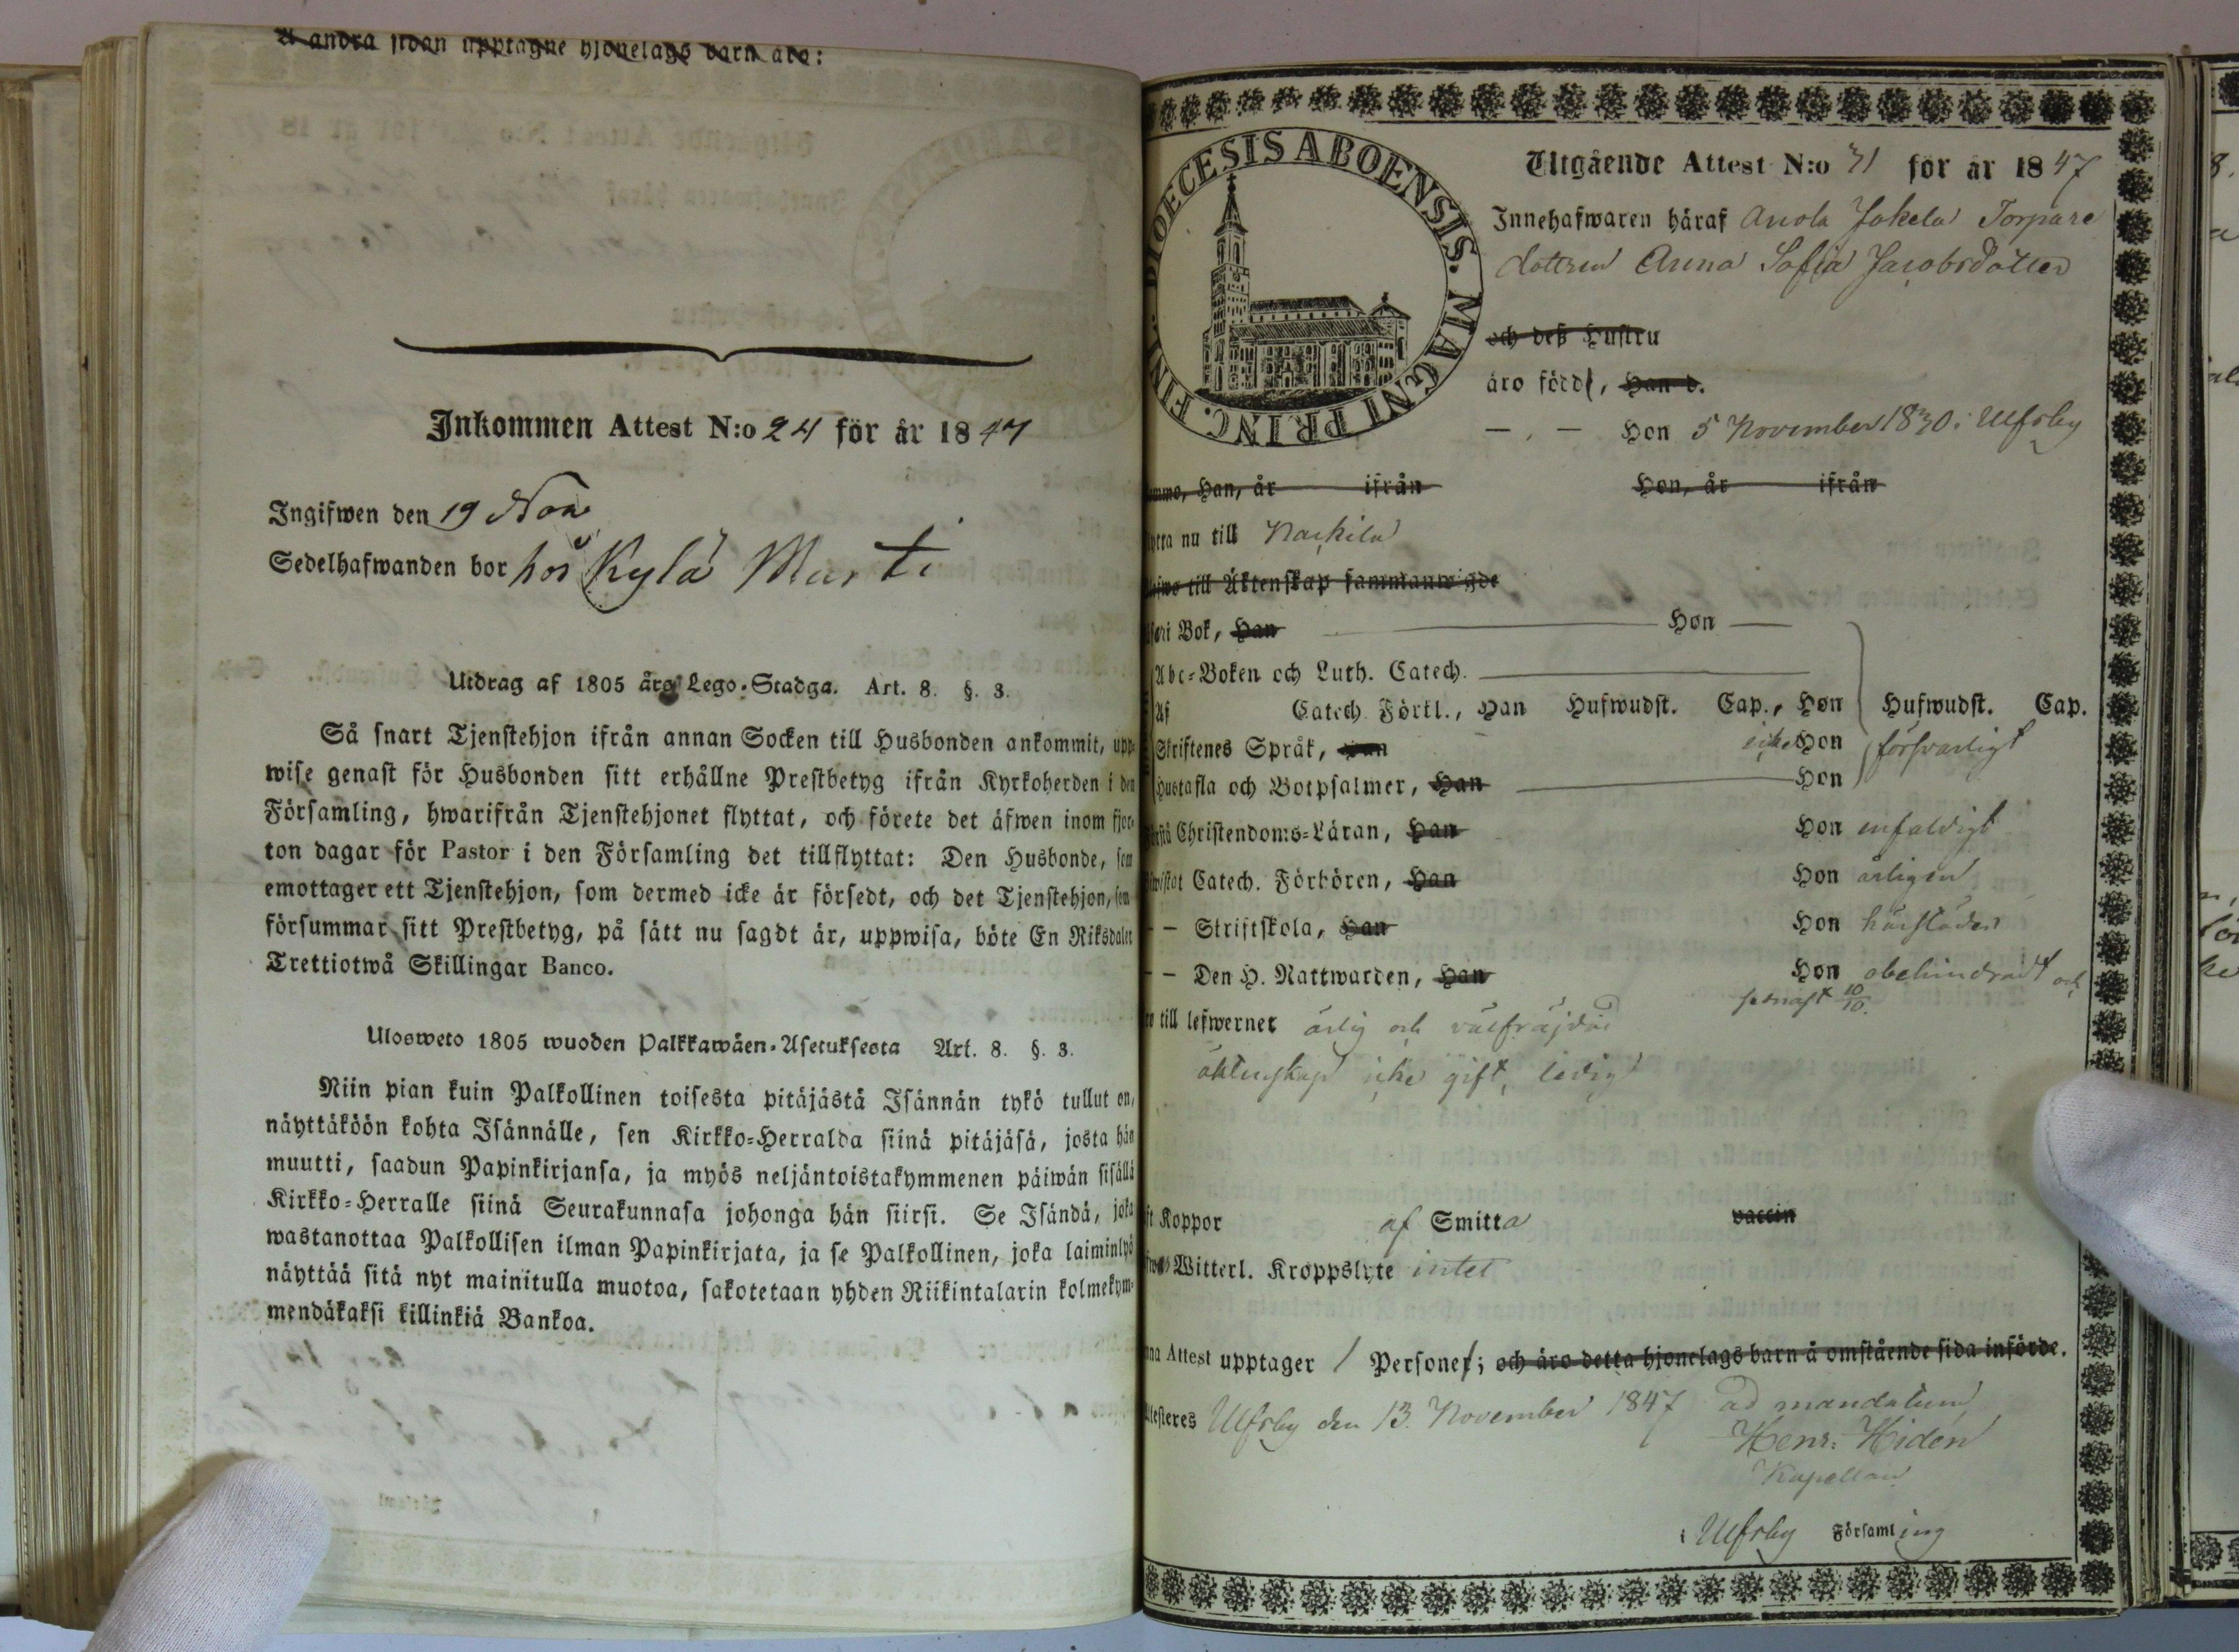 A andra sidan upptagne hjonelags barn äro:
Inkommen Attest N:o 24 för år 1847
Ingifwen den 19 Nov
Sedelhafwanden bor hos Kylä Murti
Utdrag af 1805 års Lego-Stadga. Art. 8. §. 3.
Så snart Tjenstehjon ifrån annan Socken till Husbonden ankommit, upp-
wise genast för Husbonden sitt erhållne Prestbetyg ifrån Kyrkoherden i den
Församling, hwarifrån Tjenstehjonet flyttat, och förete det äfwen inom fjor-
ton dagar för Pastor i den Församling det tillflyttat: Den Husbonde, som
emottager ett Tjenstehjon, som dermed icke är försedt, och det Tjenstehjon, som
försummar sitt Prestbetyg, på sätt nu sagdt är, uppwisa, böte En Riksdaler
Trettiotwå Skillingar Banco.
Ulosweto 1805 wuoden Palkkawäen-Asetuksesta Art. 8. §. 3.
Niin pian kuin Palkollinen toisesta pitäjästä Isännän tykö tullut on,
näyttäköön kohta Isännälle, sen Kirkko-Herralda siinä pitäjäsä, josta hän
muutti, saadun Papinkirjansa, ja myös neljäntoistakymmenen päiwän sisällä
Kirkko-Herralle siinä Seurakunnasa johonga hän siirsi. Se Isändä, joka
wastanottaa Palkollisen ilman Papinkirjata, ja se Palkollinen, joka laiminlyö
näyttää sitä nyt mainitulla muotoa, sakotetaan yhden Riikintalarin kolmekym-
mendäkaksi killinkiä Bankoa.
DIOECESIS ABOENSIS. MAGNI PRINC. FINL.
Utgående Attest N:o 31 för år 1847
Innehafwaren häraf Anola Jokela Torpare
dottren Anna Sofia Jacobsdotter
och deß Hustru
äro född, Han d.
Hon 5 November 1830 i Ulfsby
Han, år ifrån Hon, år ifrån
nu till Nackila
till Äktenskap sammanwigde
Bok, Han Hon
Abc-Boken och Luth. Catech.
Af Catech. Förkl., Han Hufwudst. Cap., Hon Hufwudst. Cap.
Skriftenes Språk, Han Hon försvarligt
Hustafla och Botpsalmer, Han Hon
Christendoms-Läran, Han Hon enfaldigt
Catech. Förhören, Han Hon årligen
Skriftskola, Han Hon härstädes
Den H. Nattwarden, Han Hon obehindradt och
senast 10/10.
till lefwernet ärlig och välfräjdad
äktenskap icke gift, ledig
Koppor af Smitta vaccin
Witterl. Kroppslyte intet
Attest upptager 1 Person; och äro detta hjonelags barn å omstående sida införde.
Attesteres Ulfsby den 13 November 1847 ad mandatum
Henr: Hidén
Kapellan
i Ulfsby Församling